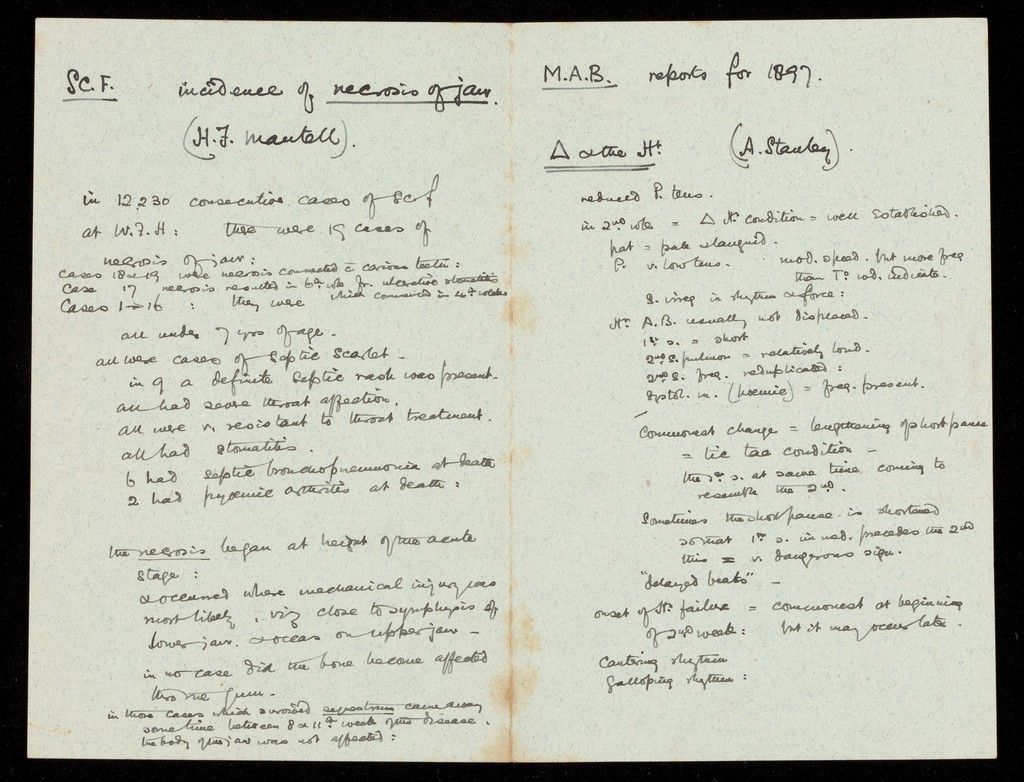 Sc.F. incidence of necrosis of jaw.
(H.F. Mantell).
in 12,230 consecutive cases of Sc.f
at W.F.H: there were 19 cases of
necrosis of jaw:
Cases 18 & 19 were necrosis connected c̄ carious teeth:
Case 17 necrosis resulted in 6th wk. fr. ulcerative stomatitis
which commenced in 4th week
Cases 1–16 : they were
all under 7 yrs of age.
all were cases of Septic Scarlet.
in 9 a definite septic rash was present.
all had severe throat affection.
all were v. resistant to throat treatment.
all had stomatitis.
6 had septic bronchopneumonia at death
2 had pyaemic arthritis at death:
the necrosis began at height of the acute
stage:
& occurred where mechanical injury was
most likely, viz close to symphysis of
lower jaw. & occas on upper jaw –
in no case did the bone become affected
thro the gum.
in those cases which survived sequestrum came away
sometime between 8 & 11th week of the disease.
the body of the jaw was not affected:
M.A.B. reports for 1897.
Δ & the Ht. (A. Stanley).
reduced P. tens.
in 2nd wk = Δ Ht condition = well established.
pat = pale & languid.
P. v. low tens. mod. speed. but more freq
than T° wd. indicate.
& irreg in rhythm & force:
Ht. A.B. usually not displaced.
1st s. = short
2nd s. pulmon = relatively loud.
2nd s. freq. reduplicated:
systol. m. (haemic) = freq. present.
Commonest change = lengthening of short pause
= tic tac condition –
the 1st s. at same time, coming to
resemble the 2nd.
Sometimes the short pause is shortened
so that 1st s. immed. precedes the 2nd
this = v. dangerous sign.
"delayed beats" –
onset of Ht. failure = commonest at beginning
of 2nd week: but it may occur late.
Cantering rhythm
Galloping rhythm: